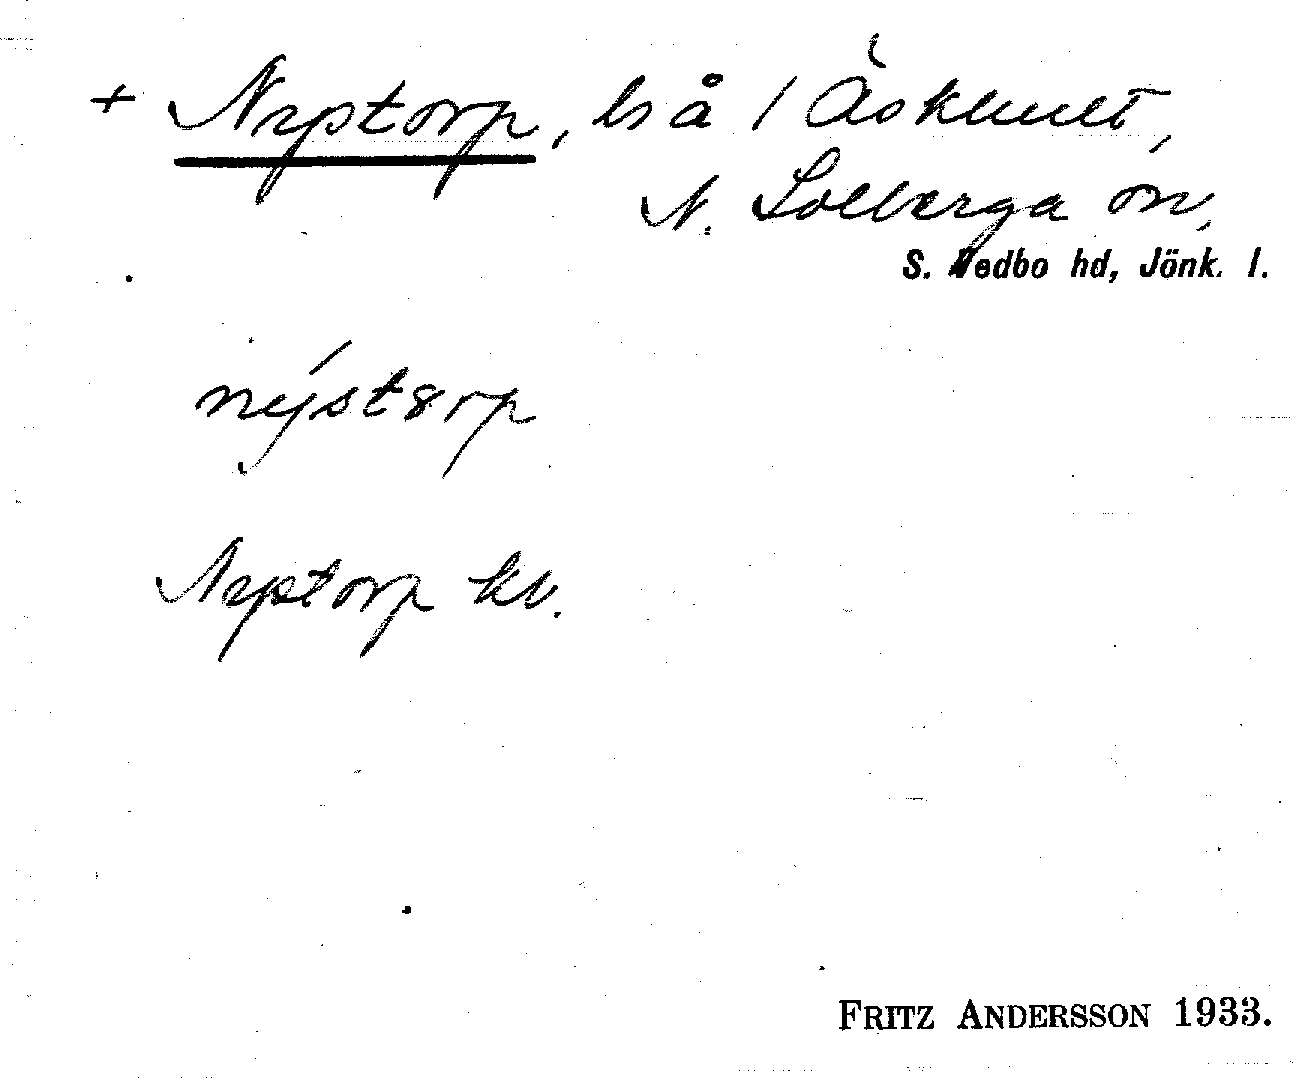 + Nystorp, ls å 1 Äskhult,
N. Solberga sn,
S. Vedbo hd, Jönk. l.
nýstorp
Nystorp kv.
FRITZ ANDERSSON 1933.